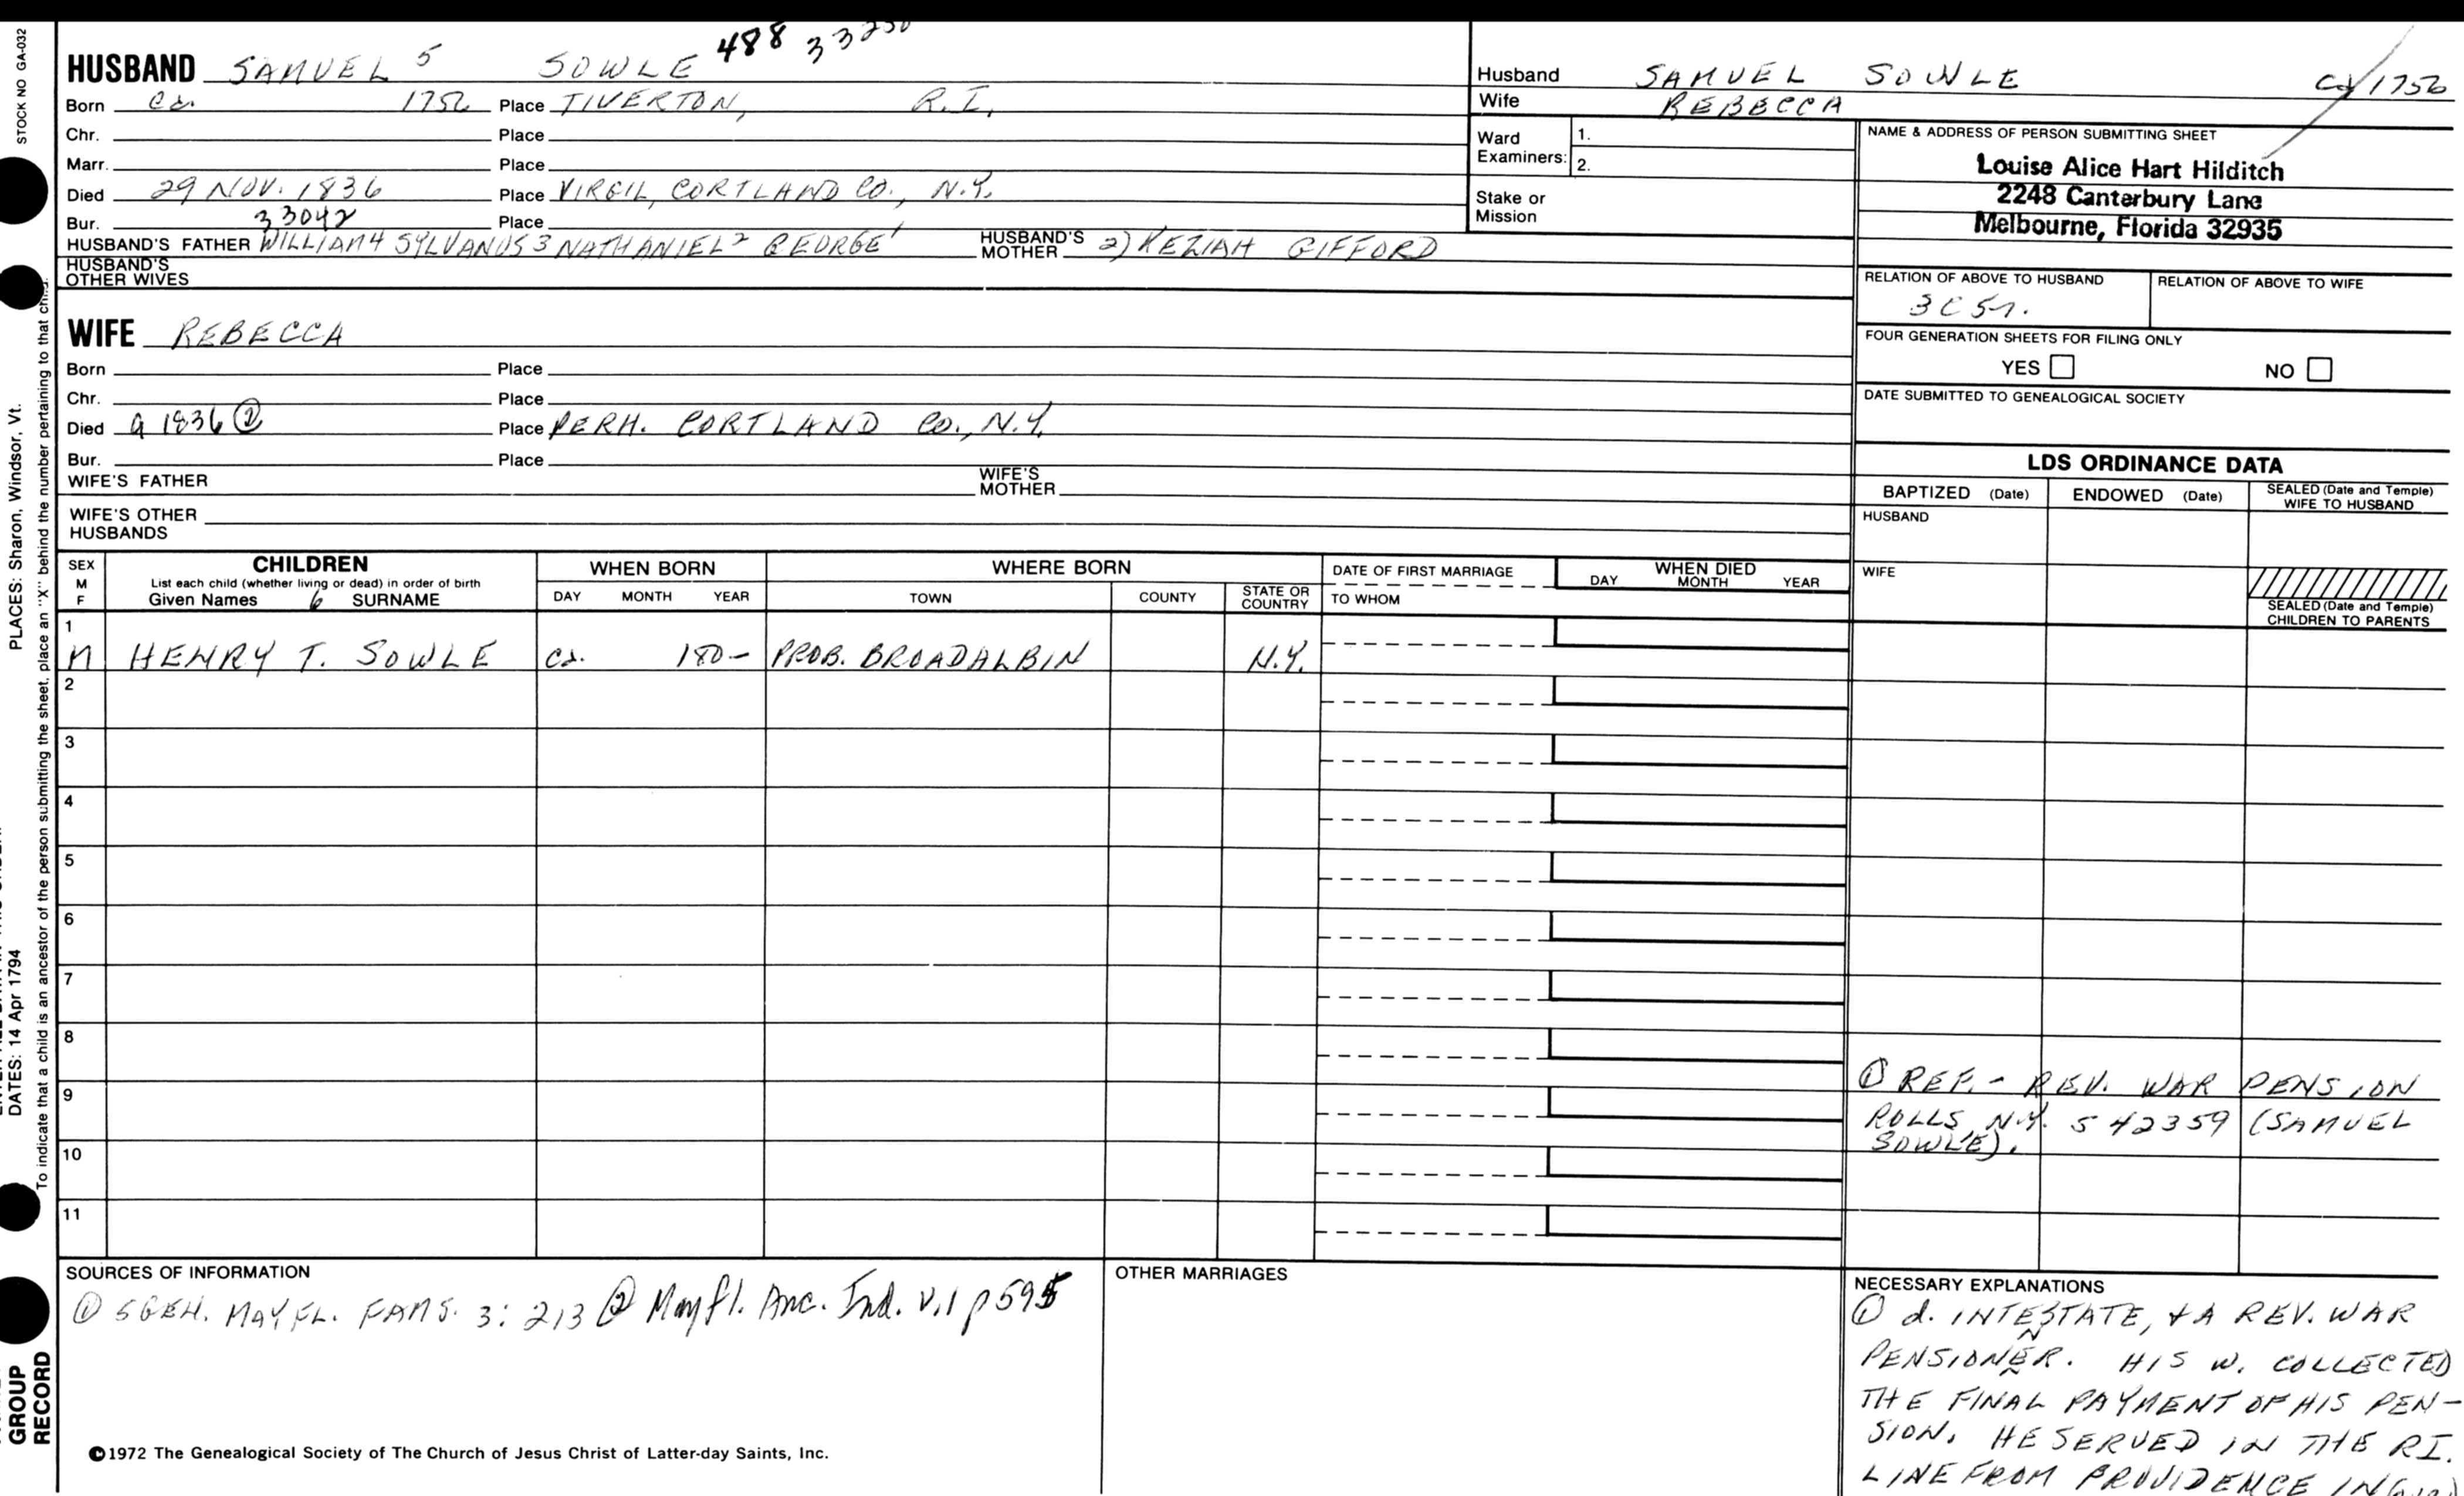 STOCK NO GA-032
488 33230
HUSBAND SAMUEL 5 SOWLE
Born ca. 1756 Place TIVERTON, R.I.
Chr. Place
Marr. Place
Died 29 NOV. 1836 Place VIRGIL, CORTLAND CO., N.Y.
Bur. 33042 Place
HUSBAND'S FATHER WILLIAM 4 SYLVANUS 3 NATHANIEL 2 GEORGE 1 HUSBAND'S MOTHER 2) KEZIAH GIFFORD
HUSBAND'S OTHER WIVES
WIFE REBECCA
Born Place
Chr. Place
Died a 1836 ② Place PERH. CORTLAND CO., N.Y.
Bur. Place
WIFE'S FATHER WIFE'S MOTHER
WIFE'S OTHER HUSBANDS
Husband SAMUEL SOWLE ca 1756
Wife REBECCA
Ward Examiners: 1.
2.
Stake or Mission
NAME & ADDRESS OF PERSON SUBMITTING SHEET
Louise Alice Hart Hilditch
2248 Canterbury Lane
Melbourne, Florida 32935
RELATION OF ABOVE TO HUSBAND RELATION OF ABOVE TO WIFE
3C5r.
FOUR GENERATION SHEETS FOR FILING ONLY
YES NO
DATE SUBMITTED TO GENEALOGICAL SOCIETY
LDS ORDINANCE DATA
BAPTIZED (Date) ENDOWED (Date) SEALED (Date and Temple) WIFE TO HUSBAND
HUSBAND
WIFE
SEALED (Date and Temple) CHILDREN TO PARENTS
SEX M F
CHILDREN
List each child (whether living or dead) in order of birth
Given Names 6 SURNAME
WHEN BORN
DAY MONTH YEAR
WHERE BORN
TOWN COUNTY STATE OR COUNTRY
DATE OF FIRST MARRIAGE
TO WHOM
WHEN DIED
DAY MONTH YEAR
1
M HENRY T. SOWLE ca. 180- PROB. BROADALBIN N.Y.
2
3
4
5
6
7
8
9
10
11
① REF. - REV. WAR PENSION
ROLLS, N.Y. S 42359 (SAMUEL
SOWLE).
SOURCES OF INFORMATION
① 5 GEN. MAYFL. FAMS. 3: 213 ② Mayfl. Anc. Ind. V.1 p 595
OTHER MARRIAGES
NECESSARY EXPLANATIONS
① d. INTESTATE, & A REV. WAR
PENSIONER. HIS W. COLLECTED
THE FINAL PAYMENT OF HIS PEN-
SION. HE SERVED IN THE RI.
LINE FROM PROVIDENCE IN
©1972 The Genealogical Society of The Church of Jesus Christ of Latter-day Saints, Inc.
PLACES: Sharon, Windsor, Vt.
DATES: 14 Apr 1794
To indicate that a child is an ancestor of the person submitting the sheet, place an "X" behind the number pertaining to that child.
GROUP
RECORD